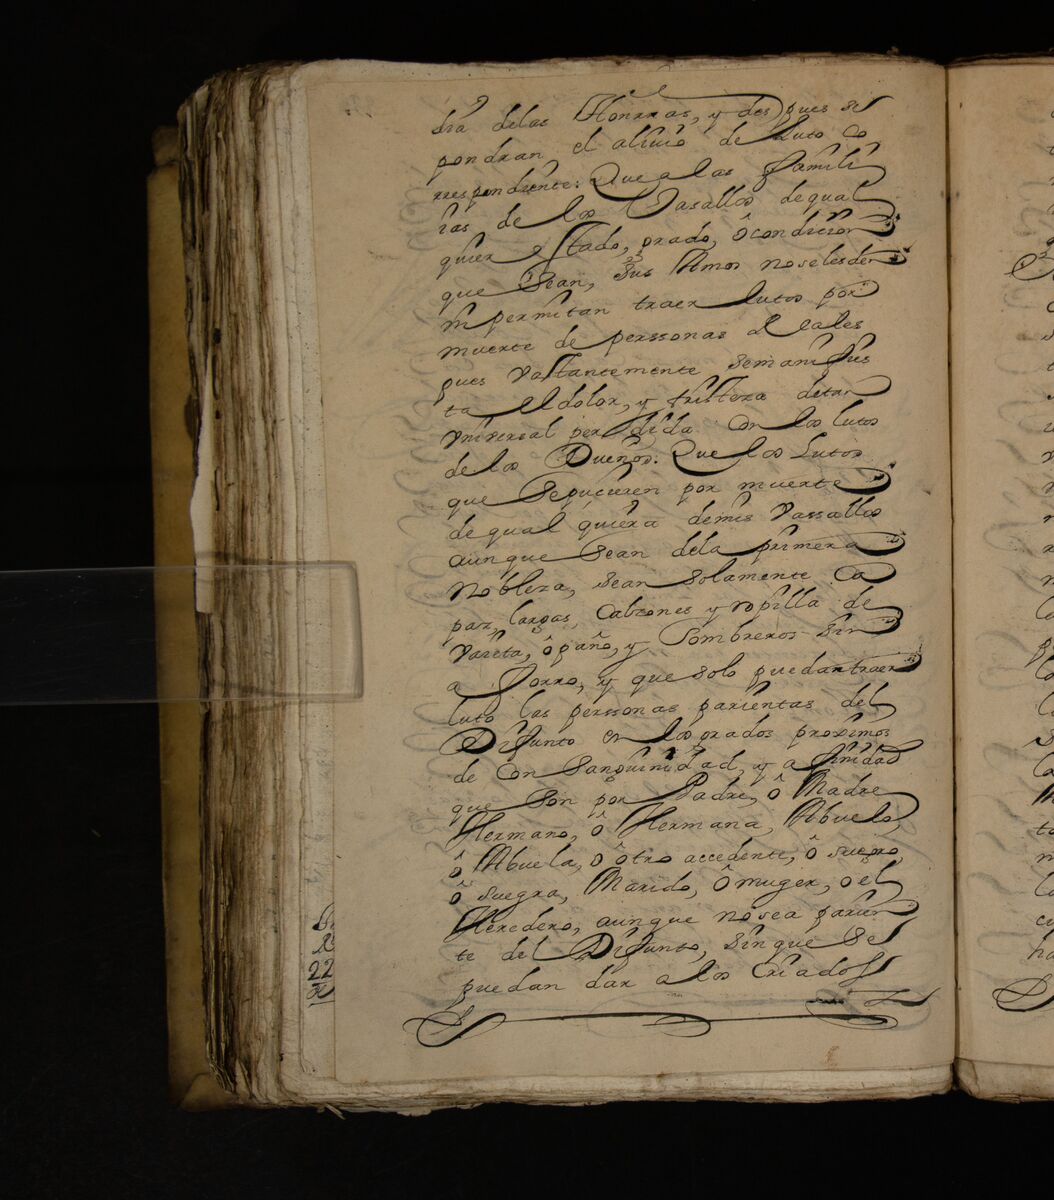 dia delas Honrras, y despues se
pondran, el aliuio de Luto co
rrespondiente: Que a las famili
ias de los Vasallos de qual
quier estado, grado, ô condicion
que sean, sus Amos no seles den
ni permitan traer lutos por
muerte de perssonas Reales
pues vastantemente se manifies
ta el dolor, y tristeza de tan
vniversal perdida con los lutos
de los Dueños. Que los Lutos
que se pucieren por muerte
de qual quiera de mis Vassallos
aunque sean dela primera
Nobleza, sean solamente Ca
pas largas, Calzones y ropilla de
Vaieta, ô paño, y Sombreros sin
a forro, y que solo puedan traer
luto las perssonas parientas del
Difunto en los grados proximos
de Consanguinidad, y afinidad
que son por Padre, ô Madre
Hermano, ô Hermana, Abuelo,
ô Abuela, ô ôtro accedente, ô suegro,
ô suegra, Marido, ô muger, o el
Heredero, aunque no sea parien
te del Difunto, sin que se
puedan dar a los Criados